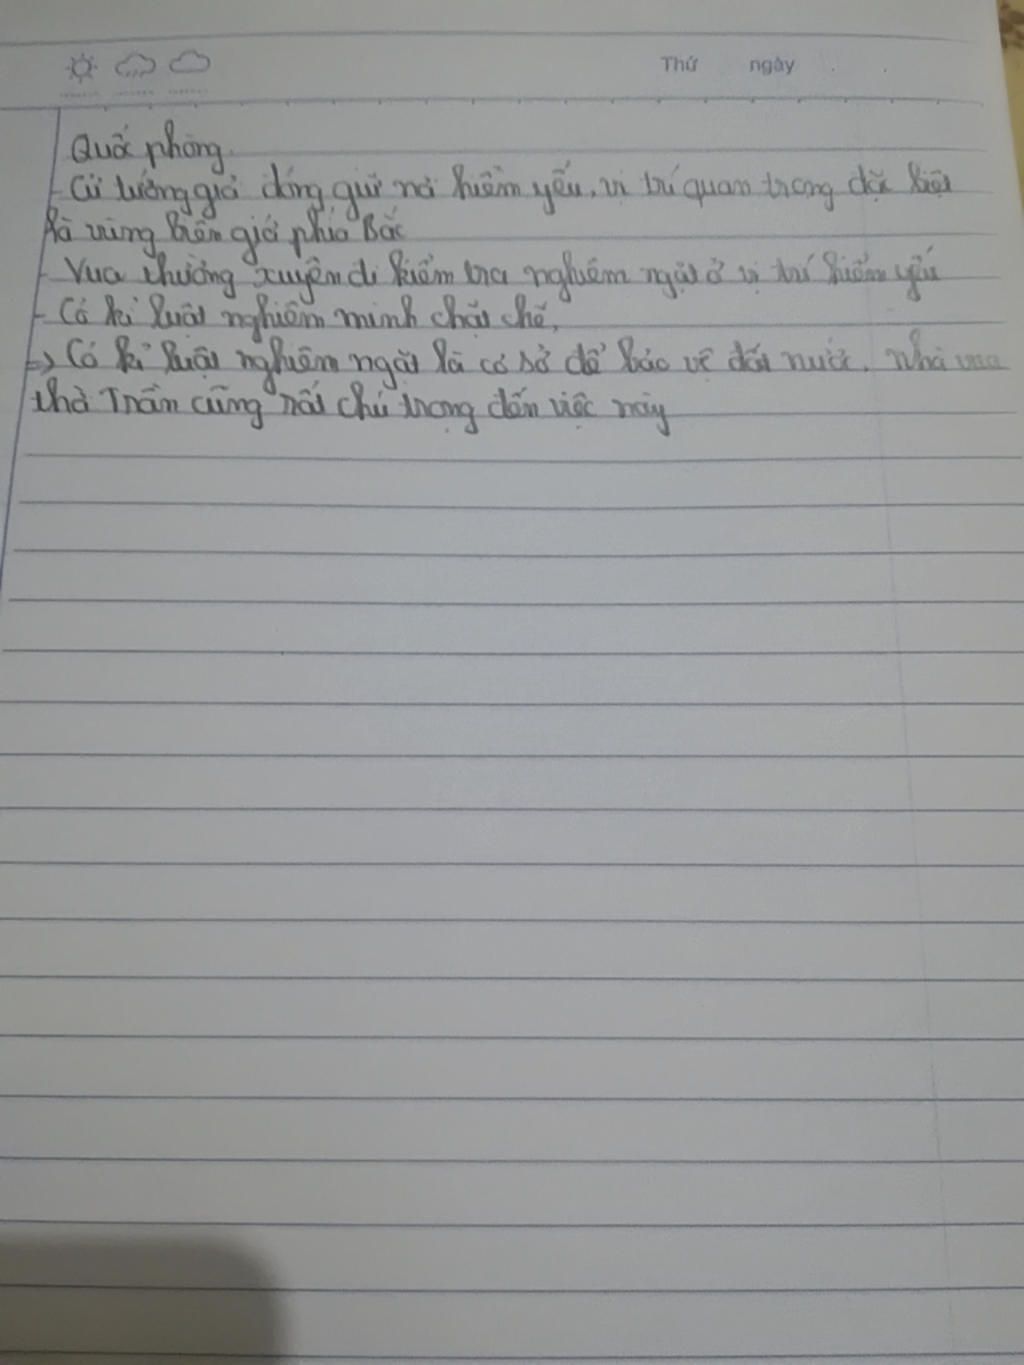 Thứ ngày
Quốc phòng.
- Cử tướng giỏi đóng giữ nơi hiểm yếu, vị trí quan trọng đặc biệt
là vùng biên giới phía Bắc
- Vua thường xuyên đi kiểm tra nghiêm ngặt ở vị trí hiểm yếu
- Có kỉ luật nghiêm minh chặt chẽ,
=> Có kỉ luật nghiêm ngặt là cơ sở để bảo vệ đất nước. Nhà vua
thời Trần cũng rất chú trọng đến việc này